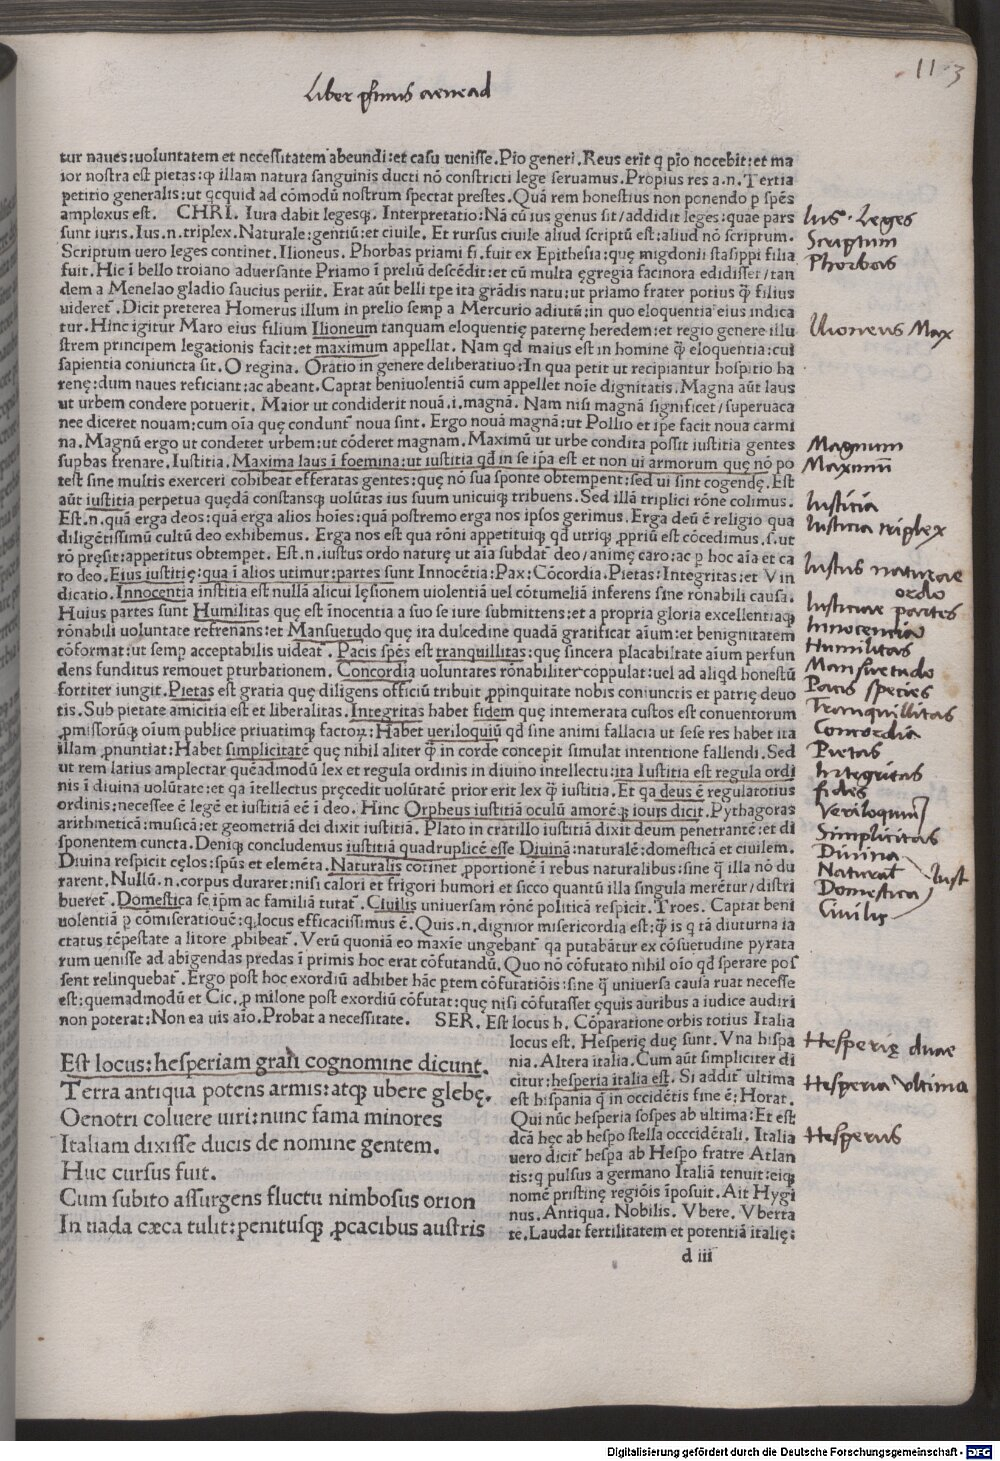 113
Liber primus aenead
tur naues:uoluntatem et necessitatem abeundi:et casu uenisse.Pio generi.Reus erit q pio nocebit:et ma
ior nostra est pietas:qͥ illam natura sanguinis ducti nō constricti lege seruamus.Propius res a.n.Tertia
petitio generalis:ut qcquid ad cōmodū nostrum spectat prestes.Quā rem honestius non ponendo p spēs
amplexus est. CHRI. Iura dabit legesqꝫ. Interpretatio:Nā cū ius genus sit/addidit leges:quae pars
sunt iuris.Ius.n.triplex.Naturale:gentiū:et ciuile. Et rursus ciuile aliud scriptū est:aliud nō scriptum.
Scriptum uero leges continet. Ilioneus. Phorbas priami fi.fuit ex Epithesia:quę migdonii stasippi filia
fuit. Hic ī bello troiano aduersante Priamo ī preliū descēdit:et cū multa ęgregia facinora edidisset/tan
dem a Menelao gladio saucius periit. Erat aūt belli tpe ita grādis natu:ut priamo frater potius q̄ filius
uideret᷑.Dicit preterea Homerus illum in prelio semp a Mercurio adiutū:in quo eloquentia eius indica
tur.Hinc igitur Maro eius filium Ilioneum tanquam eloquentię paternę heredem:et regio genere illu
strem principem legationis facit:et maximum appellat. Nam qd maius est in homine q̄ eloquentia:cui
sapientia coniuncta sit.O regina. Oratio in genere deliberatiuo:In qua petit ut recipiantur hospitio ha
renę:dum naues reficiant:ac abeant.Captat beniuolentiā cum appellet noīe dignitatis.Magna aūt laus
ut urbem condere potuerit. Maior ut condiderit nouā.i.magnā. Nam nisi magnā significet/superuaca
nee diceret nouam:cum oīa quę condunt᷑ noua sint. Ergo nouā magnā:ut Pollio et ipe facit noua carmi
na.Magnū ergo ut condetet urbem:ut cōderet magnam.Maximū ut urbe condita possit iustitia gentes
supbas frenare.Iustitia.Maxima laus ī foemina:ut iustitia qd in se ipa est et non ui armorum quę nō po
test sine multis exerceri cohibeat efferatas gentes:quę nō sua sponte obtempent:sed ui sint cogendę.Est
aūt iustitia perpetua quędā constansqꝫ uolūtas ius suum unicuiqꝫ tribuens.Sed illā triplici rōne colimus.
Est.n.quā erga deos:quā erga alios hoīes:quā postremo erga nos ipsos gerimus.Erga deū ē religio qua
diligētissimū cultū deo exhibemus. Erga nos est qua rōni appetituiqꝫ qd utriqꝫ ꝓpriū est cōcedimus.s.ut
rō pręsit:appetitus obtempet. Est.n.iustus ordo naturę ut aīa subdat᷑ deo/animę caro:ac p hoc aīa et ca
ro deo.Eius iustitię:qua ī alios utimur:partes sunt Innocētia:Pax:Cōcordia.Pietas:Integritas:et Vin
dicatio.Innocentia institia est nullā alicui lęsionem uiolentiā uel cōtumeliā inferens sine rōnabili causa.
Huius partes sunt Humilitas quę est īnocentia a suo se iure submittens:et a propria gloria excellentiaqꝫ
rōnabili uoluntate refrenans:et Mansuetudo quę ita dulcedine quadā gratificat aīum:et benignitatem
cōformat:ut semp acceptabilis uideat᷑.Pacis spēs est tranquillitas:quę sincera placabilitate aīum perfun
dens funditus remouet pturbationem.Concordia uoluntates rōnabiliter coppulat:uel ad aliqd honestū
fortiter iungit.Pietas est gratia quę diligens officiū tribuit ꝓpinquitate nobis coniunctis et patrię deuo
tis.Sub pietate amicitia est et liberalitas.Integritas habet fidem quę intemerata custos est conuentorum
ꝓmissorūqꝫ oīum publice priuatimqꝫ factoꝝ:Habet ueriloquiū qd sine animi fallacia ut sese res habet ita
illam ꝓnuntiat:Habet simplicitatē quę nihil aliter q̄ in corde concepit simulat intentione fallendi.Sed
ut rem latius amplectar quēadmodū lex et regula ordinis in diuino intellectu:ita Iustitia est regula ordi
nis ī diuina uolūtate:et qa ītellectus pręcedit uolūtatē prior erit lex q̄ iustitia. Et qa deus ē regulatotius
ordinis:necesse ē legē et iustitiā eē ī deo.Hinc Orpheus iustitiā oculū amorēqꝫ iouis dicit.Pythagoras
arithmeticā:musicā:et geometriā dei dixit iustitiā.Plato in cratillo iustitiā dixit deum penetrantē:et di
sponentem cuncta.Deniqꝫ concludemus iustitiā quadruplicē esse Diuinā:naturalē:domesticā et ciuilem.
Diuina respicit cęlos:spūs et elemēta.Naturalis cōtinet ꝓportionē ī rebus naturalibus:sine q̄ illa nō du
rarent.Nullū.n.corpus duraret:nisi calori et frigori humori et sicco quantū illa singula merētur/distri
bueret᷑.Domestica se ipm ac familiā tutat᷑.Ciuilis uniuersam rōnē politicā respicit.Troes. Captat beni
uolentiā p cōmiseratiouē:q locus efficacissimus ē.Quis.n.dignior misericordia est:q̄ is q tā diuturna ia
ctatus tēpestate a litore ꝓhibeat᷑.Verū quoniā eo maxīe ungebant᷑ qa putabātur ex cōsuetudine pyrata
rum uenisse ad abigendas predas ī primis hoc erat cōfutandū.Quo nō cōfutato nihil oīo qd sperare pos
sent relinquebat᷑.Ergo post hoc exordiū adhibet hāc ptem cōfutatiōis:sine q̄ uniuersa causa ruat necesse
est:quemadmodū et Cic.p milone post exordiū cōfutat:quę nisi cōfutasset ęquis auribus a iudice audiri
non poterat:Non ea uis aīo.Probat a necessitate. SER. Est locus h. Cōparatione orbis totius Italia
locus est. Hesperię duę sunt. Vna hispa
nia.Altera italia.Cum aūt simpliciter di
citur:hesperia italia est.Si addit᷑ ultima
est hispania q̄ in occidētis fine ē:Horat.
Qui nūc hesperia sospes ab ultima:Et est
dcā hęc ab hespo stella occcidētali. Italia
uero dicit᷑ hespa ab Hespo fratre Atlan
tis:q pulsus a germano Italiā tenuit:eiqꝫ
nomē pristinę regiōis īposuit. Ait Hygi
nus.Antiqua. Nobilis. Vbere. Vberta
te.Laudat fertilitatem et potentiā italię:
Est locus:hesperiam graii cognomine dicunt.
Terra antiqua potens armis:atqꝫ ubere glebę.
Oenotri coluere uiri:nunc fama minores
Italiam dixisse ducis de nomine gentem.
Huc cursus fuit.
Cum subito assurgens fluctu nimbosus orion
In uada cæca tulit:penitusqꝫ ꝓcacibus austris
d iii
Ius. Leges
Scriptum
Phorbas
Ilioneus Max
Magnum
Maximū
Iusticia
Iusticia triplex
Iustus naturae
ordo
Iusticiae partes
Innocencia
Humilitas
Mansuetudo
Pacis species
Tranquillitas
Concordia
Pietas
Integritas
fides
Veriloquium
Simplicitas
Diuina
Natural
Domestica
Ciuilis
Iust
Hesperię duae
Hesperia Vltima
Hesperus
Digitalisierung gefördert durch die Deutsche Forschungsgemeinschaft - DFG